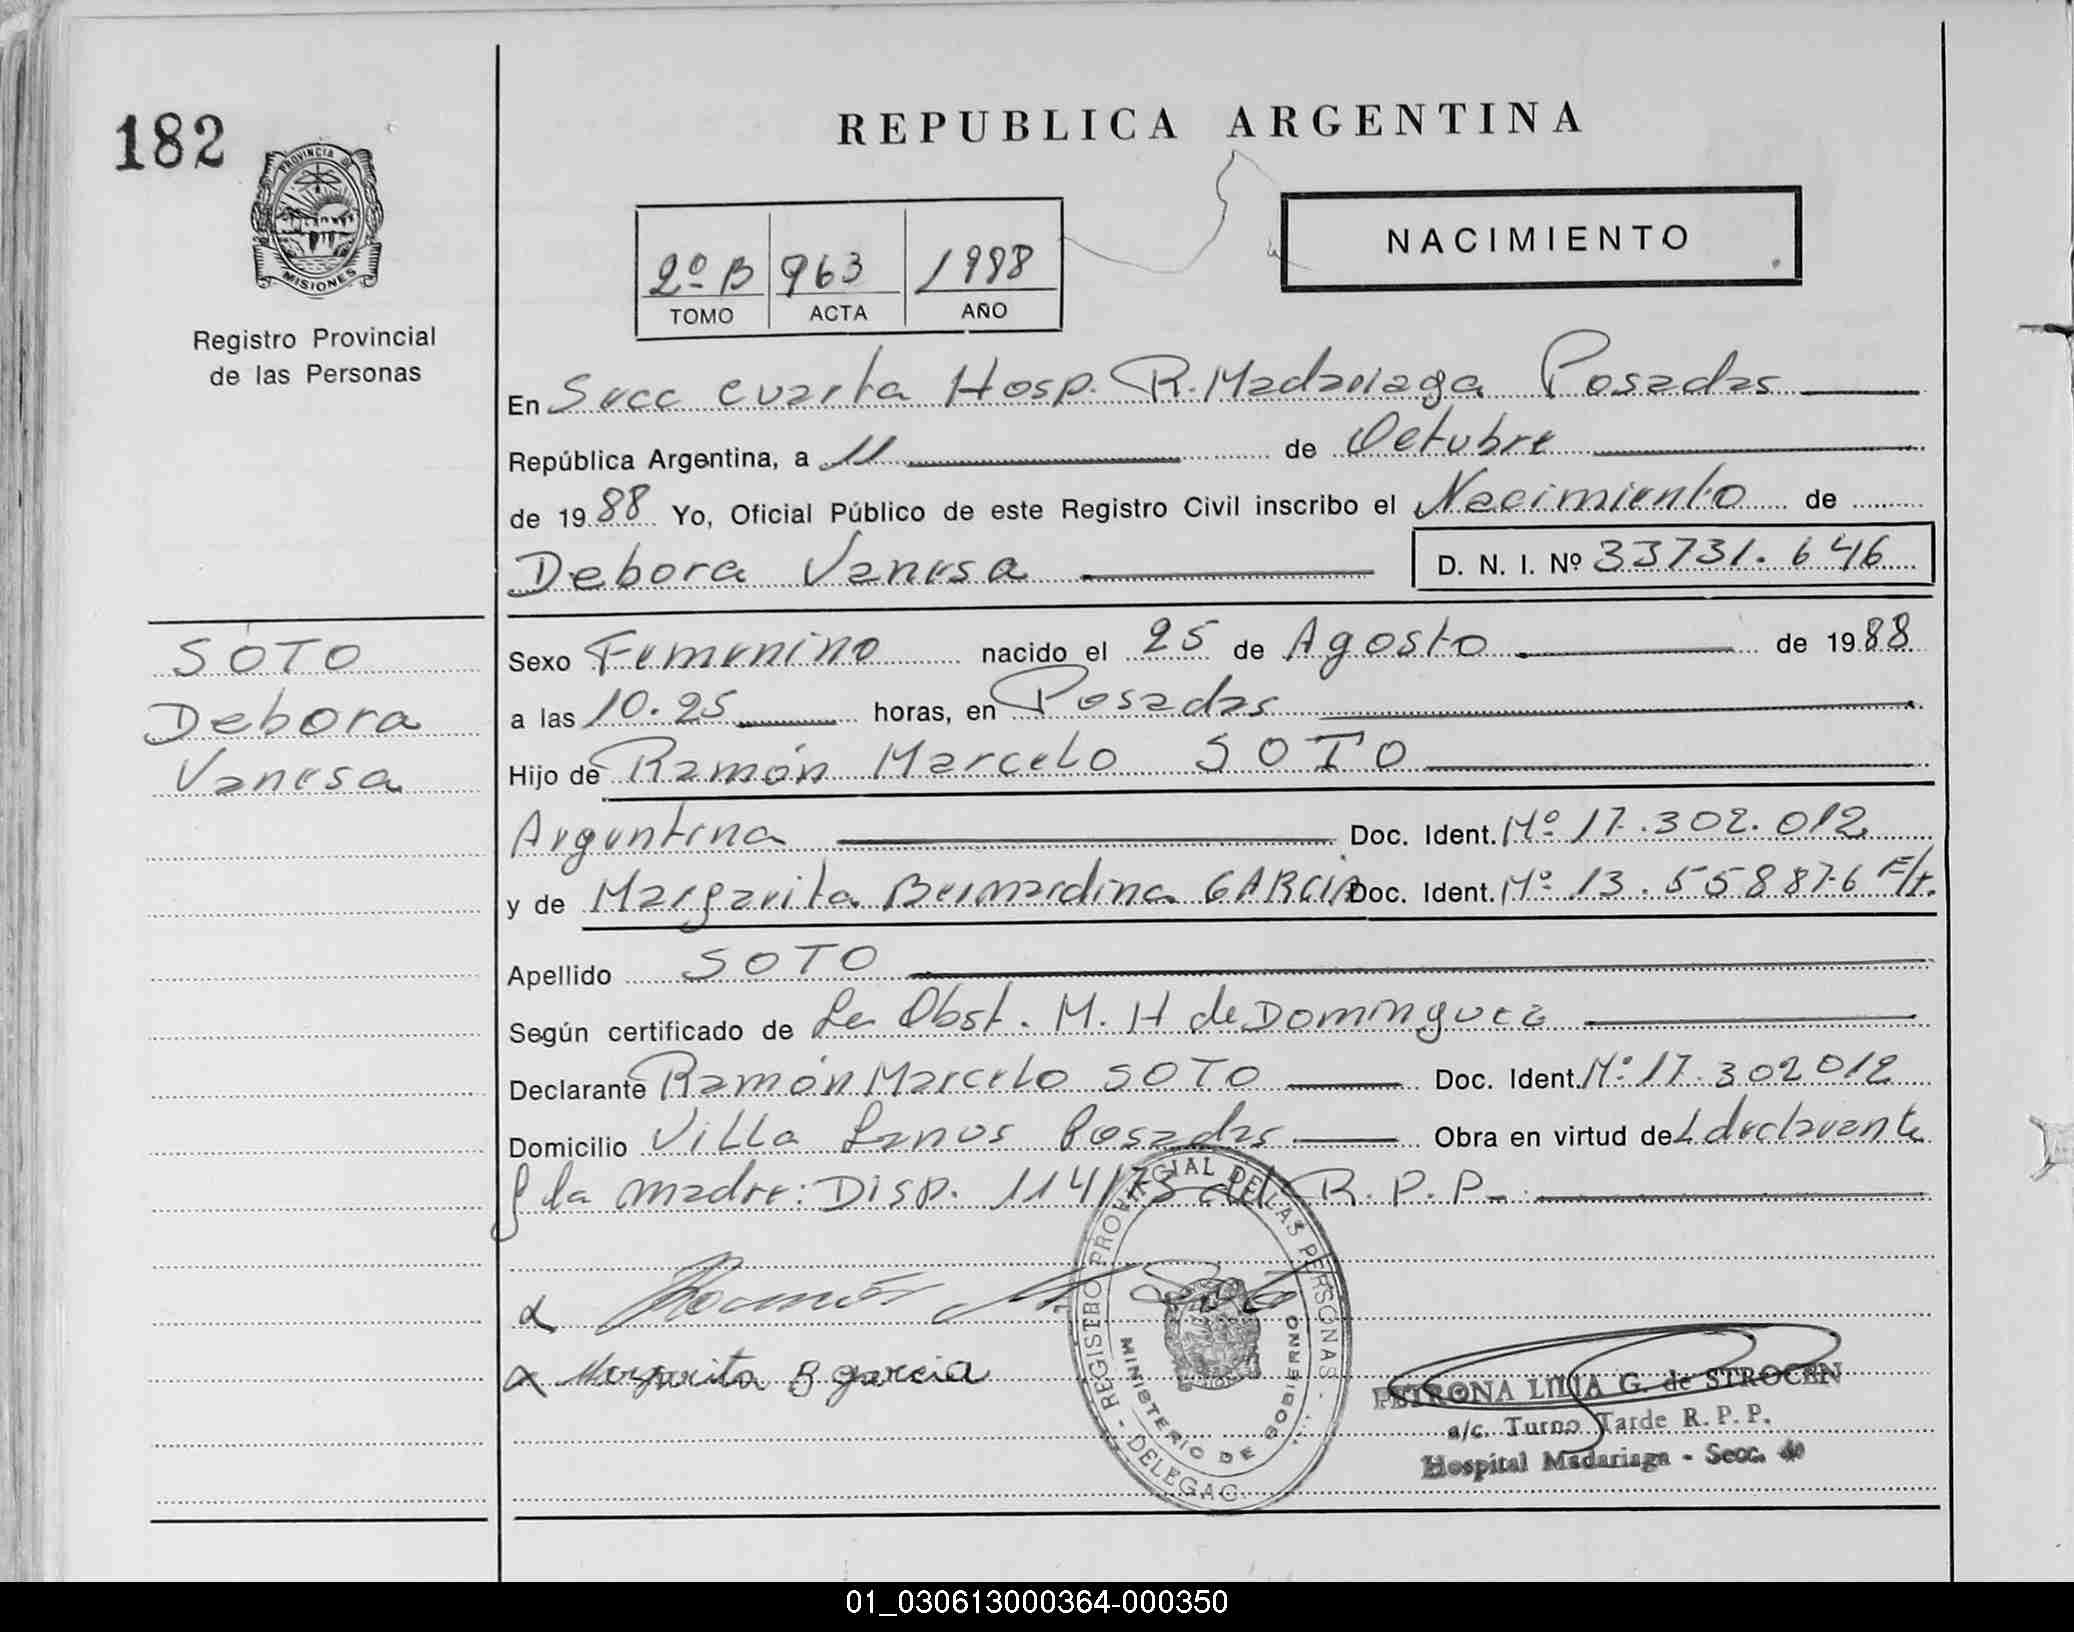 182
PROVINCIA DE
MISIONES
Registro Provincial
de las Personas
REPUBLICA ARGENTINA
2º B 963 1988
TOMO ACTA AÑO
NACIMIENTO
En Secc cuarta Hosp. R. Madariaga Posadas
República Argentina, a 11 de Octubre
de 1988 Yo, Oficial Público de este Registro Civil inscribo el Nacimiento de
Debora Vanesa D. N. I. Nº 33731.646
SOTO
Debora
Vanesa
Sexo Femenino nacido el 25 de Agosto de 1988
a las 10.25 horas, en Posadas
Hijo de Ramón Marcelo SOTO
Argentina Doc. Ident. Nº 17.302.012
y de Margarita Bernardina GARCIA Doc. Ident. Nº 13.558876 F/r.
Apellido SOTO
Según certificado de La Obst. M. H de Dominguez
Declarante Ramón Marcelo SOTO Doc. Ident. Nº 17.302012
Domicilio Villa Lanus Posadas Obra en virtud del declarante
y la madre: Disp. 114/73 del R.P.P.
Ramón M. Soto
Margarita B garcia
REGISTRO PROVINCIAL DE LAS PERSONAS - DELEGAC.
MINISTERIO DE GOBIERNO
PETRONA LILIA G. de STROCEN
a/c. Turno Tarde R. P. P.
Hospital Madariaga - Secc. 4o
01_030613000364-000350